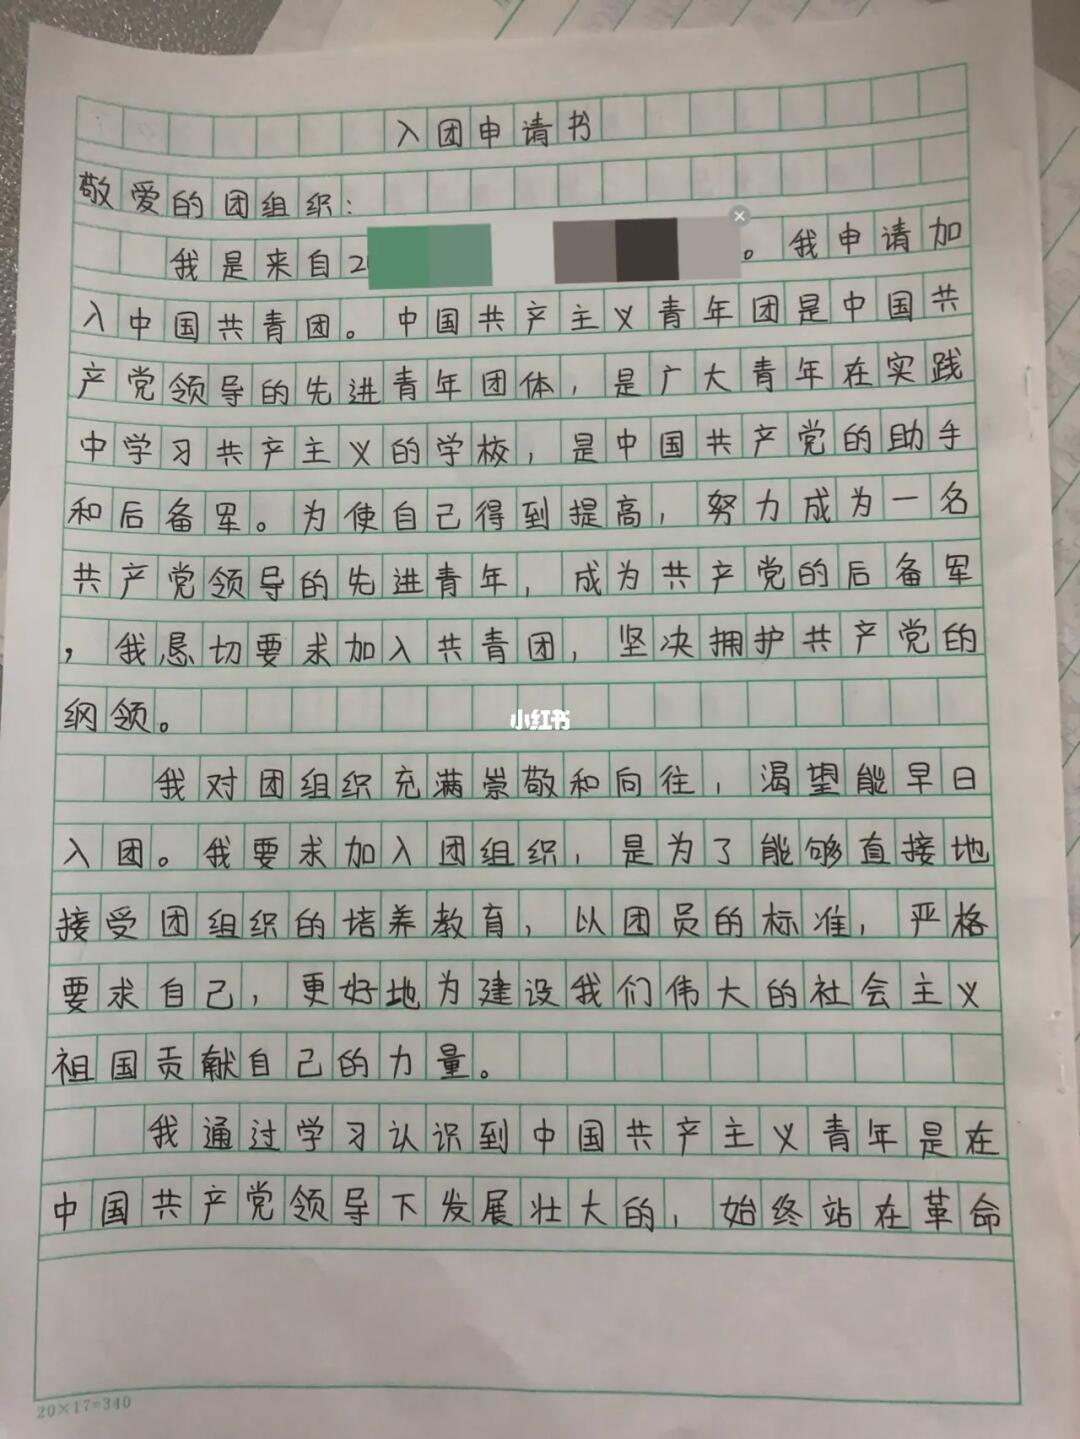 入团申请书
敬爱的团组织：
我是来自2 。我申请加
入中国共青团。中国共产主义青年团是中国共
产党领导的先进青年团体，是广大青年在实践
中学习共产主义的学校，是中国共产党的助手
和后备军。为使自己得到提高，努力成为一名
共产党领导的先进青年，成为共产党的后备军
，我恳切要求加入共青团，坚决拥护共产党的
纲领。
小红书
我对团组织充满崇敬和向往，渴望能早日
入团。我要求加入团组织，是为了能够直接地
接受团组织的培养教育，以团员的标准，严格
要求自己，更好地为建设我们伟大的社会主义
祖国贡献自己的力量。
我通过学习认识到中国共产主义青年是在
中国共产党领导下发展壮大的，始终站在革命
20×17=340